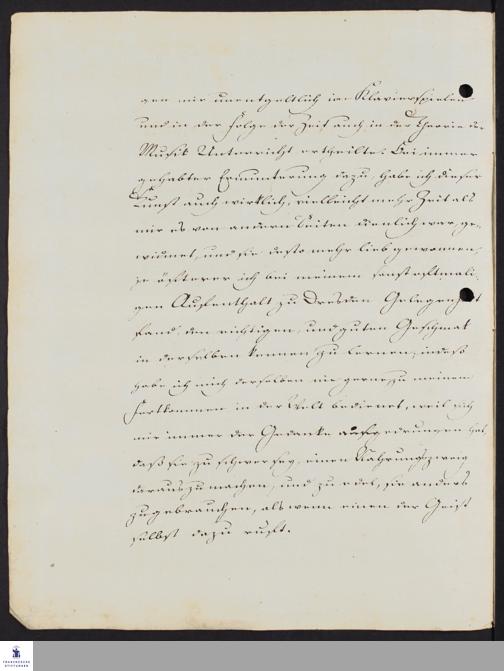 gen mir unentgeltlich im Klavierspielen
und in der Folge der Zeit auch in der Theorie der
Musik Unterricht ertheilte. Bei immer
gehabter Ermunterung dazu, habe ich dieser
Kunst auch wirklich, vielleicht mehr Zeit als
mir es von andern Seiten dienlich war, ge-
widmet, und sie desto mehr lieb gewonnen,
je öfterer ich bei meinem sonst oftmali-
gen Aufenthalt zu Dresden Gelegenheit
fand, den richtigen, und guten Geschmak
in derselben kennen zu lernen, indeß
habe ich mich derselben nie gerne zu meinem
Fortkommen in der Welt bedienet, weil sich
mir immer der Gedanke aufgedrungen hat,
daß sie zu schwer sey, einen Nahrungszweig
daraus zu machen, und zu edel, sie anders
zu gebrauchen, als wenn einen der Geist
selbst dazu ruft.
FRANCKESCHE
STIFTUNGEN